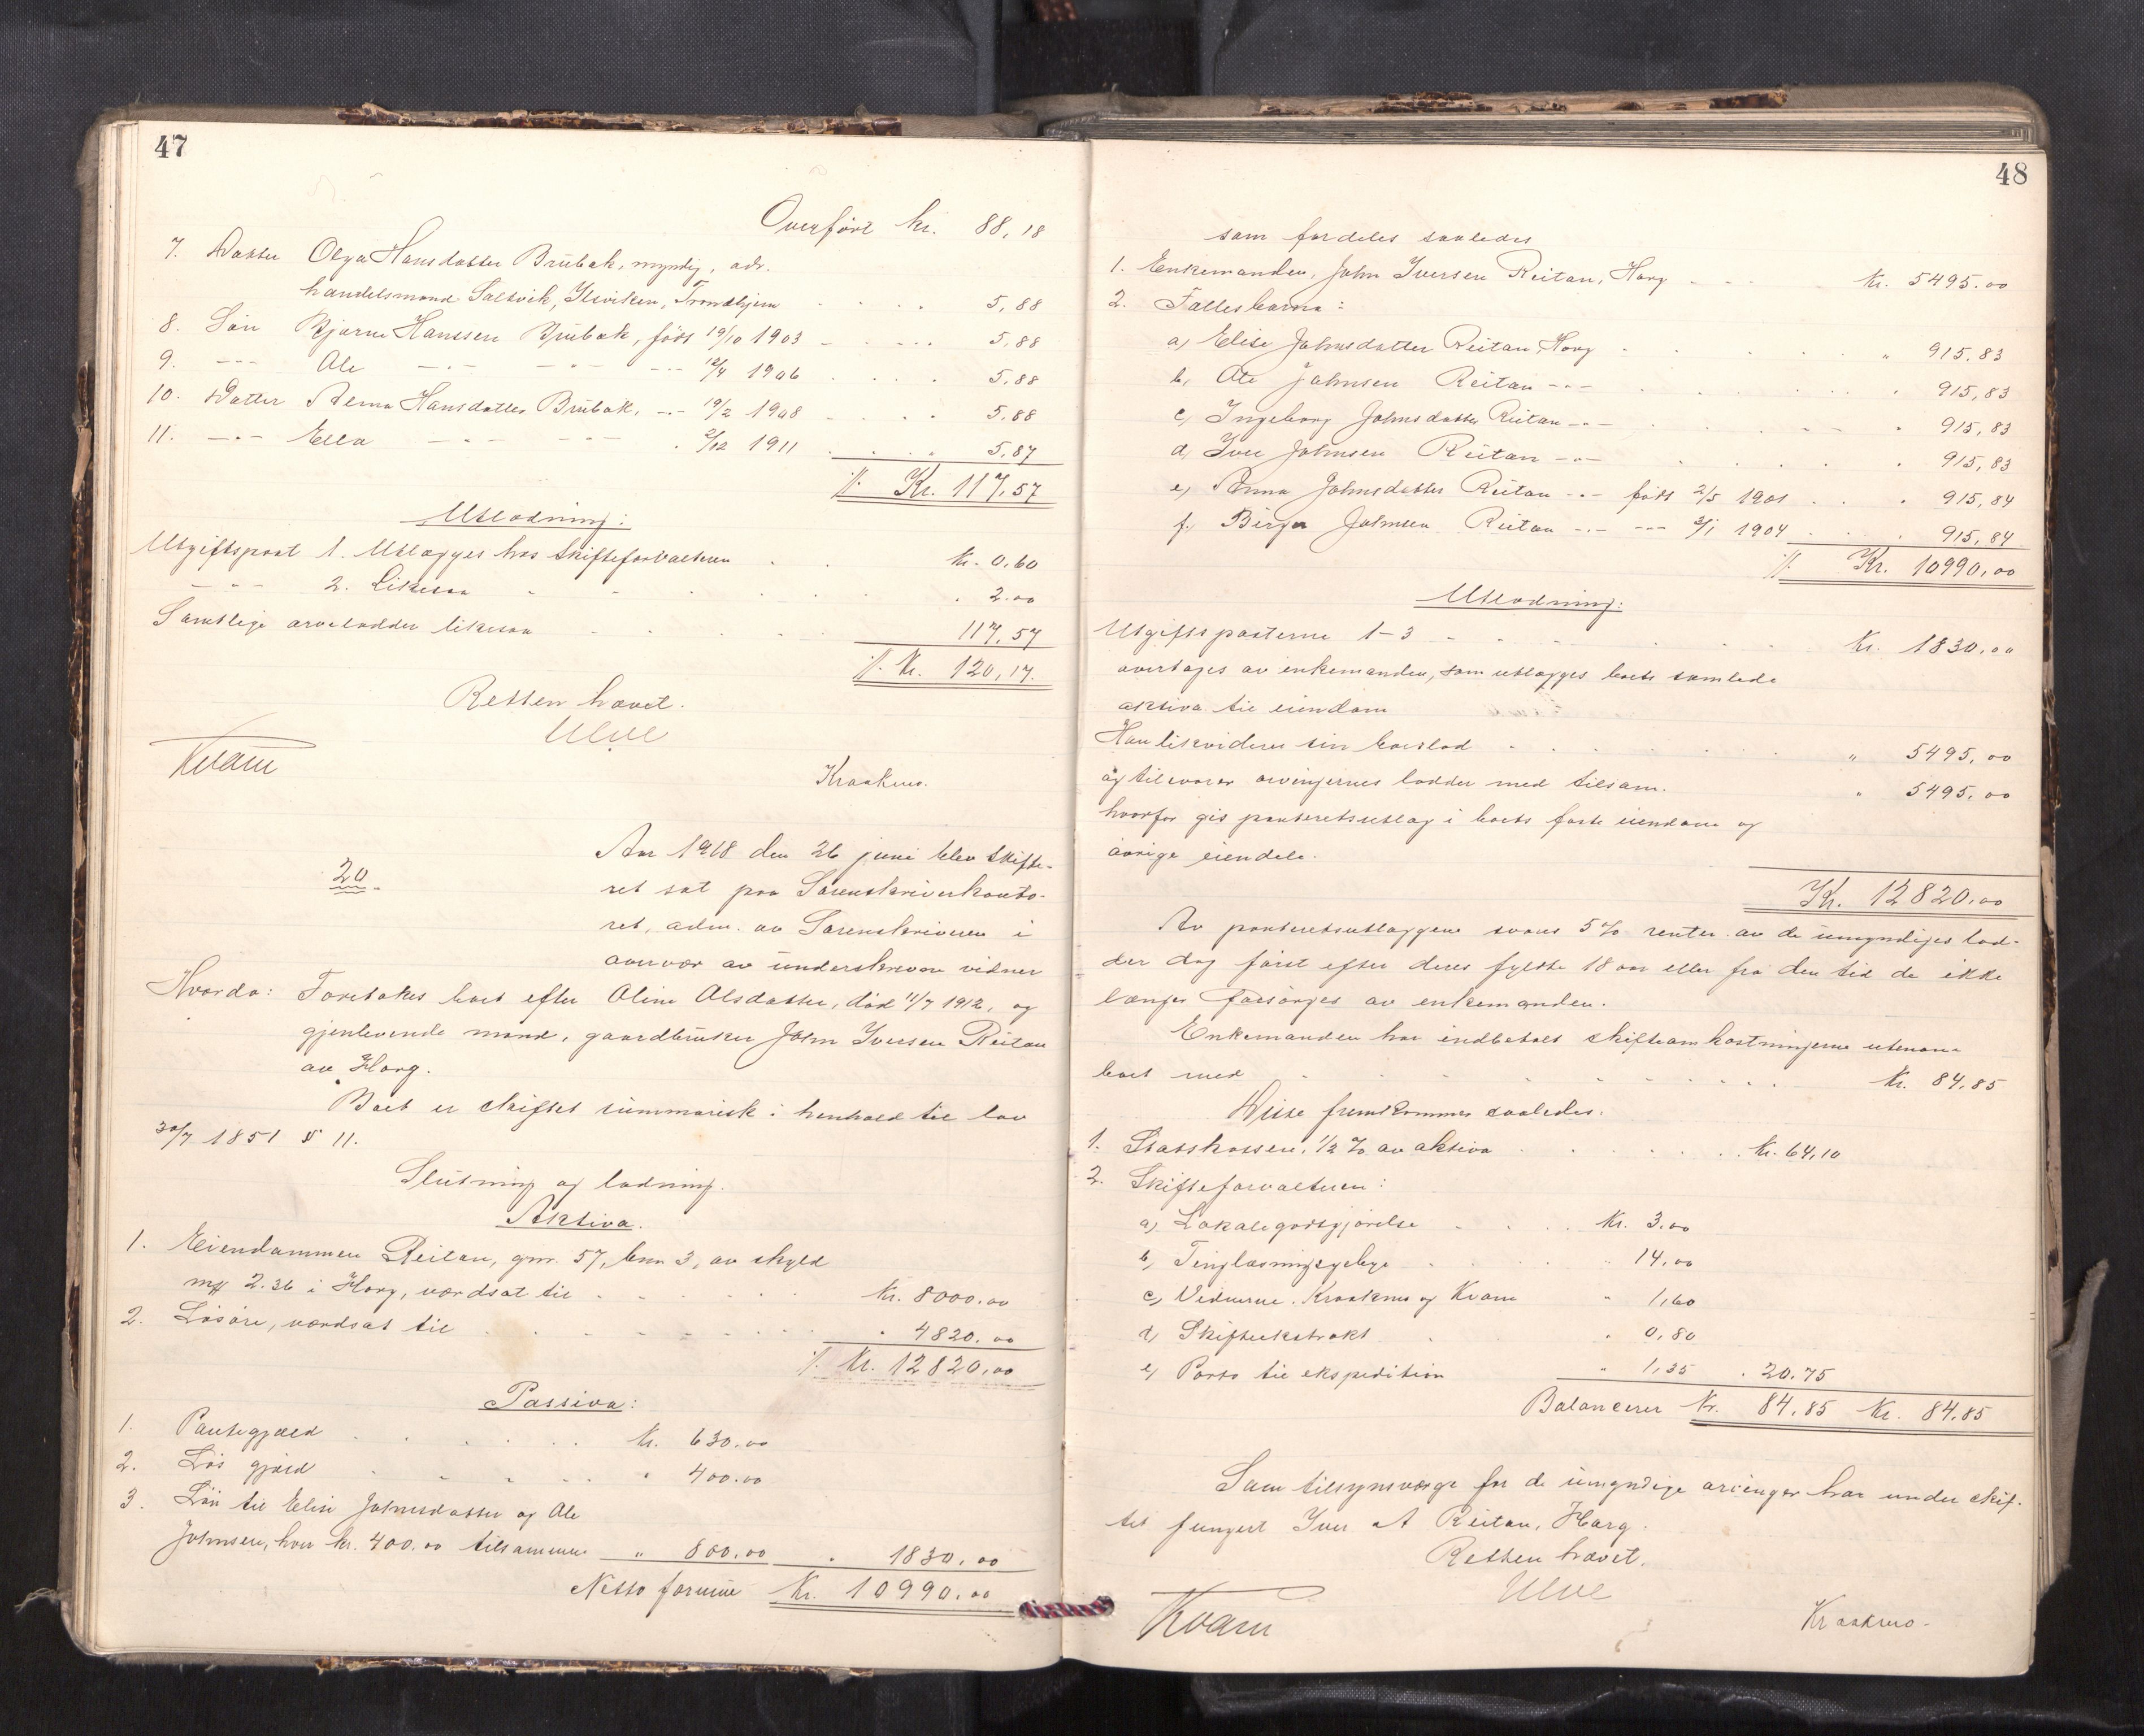 47
Overført kr. 88,18
7. Datter Olga Hansdatter Brubak, myndig, adr.
handelsmand Saltvik, Ilsviken, Trondhjem 5,88
8. Søn Bjarne Hanssen Brubak, født 19/10 1903 5,88
9. -"- Ole -"- -"- -"- 12/4 1906 5,88
10. Datter Alma Hansdatter Brubak, -"- 19/2 1908 5,88
11. -"- Ella -"- -"- 2/12 1911 5,87
./. Kr. 117,57
Utlodning:
Utgiftspost 1. Utlægges hos skifteforvalteren kr. 0,60
-"- 2. Likesaa 2.00
Samtlige arvelodder likesaa 117,57
./. Kr. 120,17.
Retten hævet.
Ulve
Kvam
Kraakmo.
20.
Aar 1918 den 26 juni blev skifte-
ret sat paa Sorenskriverkonto-
ret, adm. av Sorenskriveren i
overvær av underskrevne vidner
Hvorda: Foretakes boet efter Oline Olsdatter, død 11/7 1912, og
gjenlevende mand, gaardbruker John Iversen Reitan
av Horg.
Boet er skiftet summarisk i henhold til lov
30/7 1851 § 11.
Slutning og lodning.
Aktiva.
1. Eiendommen Reitan, gnr. 57, bnr 3, av skyld
mrk 2.36 i Horg, værdsat til kr. 8000.00
2. Løsøre, værdsat til " 4820.00
./. Kr. 12820,00
Passiva:
1. Pantegjæld Kr. 630.00
2. Løs gjæld " 400.00
3. Løn til Elise Johnsdatter og Ole
Johnsen, hver kr. 400.00 tilsammen " 800.00 " 1830.00
Netto formue Kr. 10990.00
48
som fordeles saaledes
1. Enkemanden, John Iversen Reitan, Horg Kr. 5495.00
2. Fællesbarna:
a, Elise Johnsdatter Reitan, Horg " 915.83
b, Ole Johnsen Reitan -"- " 915,83
c, Ingeborg Johnsdatter Reitan -"- " 915,83
d, Iver Johnsen Reitan -"- " 915,83
e, Anna Johnsdatter Reitan -"- født 2/5 1901 " 915,84
f, Birger Johnsen Reitan -"- -"- 2/1 1904 915,84
./. Kr. 10990,00
Utlodning:
Utgiftsposterne 1-3 Kr. 1830.00
overtages av enkemanden, som utlægges boets samlede
aktiva til eiendom
Han likviderer sin boeslod " 5495,00
og tilsvarer arvingernes lodder med tilsam. " 5495.00
hvorfor gis panteretsutlæg i boets faste eiendom og
øvrige eiendele.
Kr. 12820.00
Av panteretsutlæggene svares 5 % renter av de umyndiges lod-
der dog først efter deres fyldte 18 aar eller fra den tid de ikke
længer forsørges av enkemanden.
Enkemanden har indbetalt skifteomkostningerne utenom
boet med Kr. 84,85
Disse fremkommer saaledes:
1. Statskassen, 1/2 % av aktiva Kr. 64,10
2. Skifteforvalteren:
a, Lokalegodtgjørelse Kr. 3.00
b, Tinglæsningsgebyr " 14.00
c, Vidnerne, Kraakmo og Kvam " 1,60
d, Skifteekstrakt " 0,80
e, Porto til ekspedition " 1,35 " 20.75
Balancerer Kr. 84.85 Kr. 84.85
Som tilsynsværge for de umyndige arvinger har under skif-
tet fungert Iver A Reitan, Horg.
Retten hævet.
Ulve
Kvam
Kraakmo.